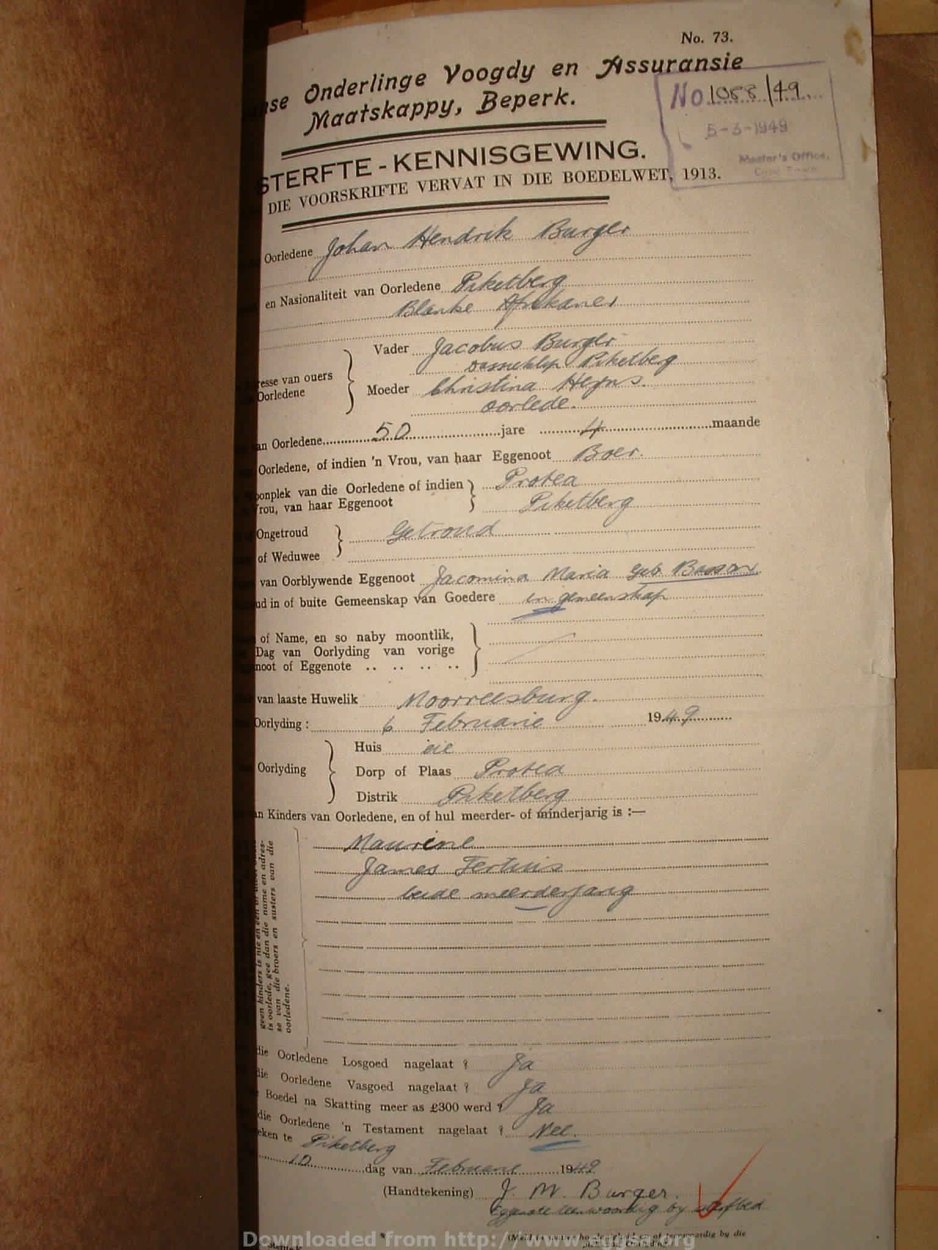 No. 73.
Onderlinge Voogdy en Assuransie
Maatskappy, Beperk.
No 1088/49
5-3-1949
Master's Office,
Cape Town
STERFTE-KENNISGEWING.
DIE VOORSKRIFTE VERVAT IN DIE BOEDELWET, 1913.
Oorledene Johan Hendrik Burger
en Nasionaliteit van Oorledene Piketberg
Blanke Afrikaner
Vader Jacobus Burger
Piketberg
van ouers
Oorledene
Moeder Christina
oorlede.
van Oorledene 50 jare 4 maande
Oorledene, of indien 'n Vrou, van haar Eggenoot Boer
van die Oorledene of indien Protea
Vrou, van haar Eggenoot Piketberg
Ongetroud
Getroud
of Weduwee
van Oorblywende Eggenoot Jacomina Maria geb. Basson
in of buite Gemeenskap van Goedere in gemeenskap
of Name, en so naby moontlik,
Dag van Oorlyding van vorige
of Eggenote .. .. .. ..
van laaste Huwelik Moorreesburg.
Oorlyding: 6 Februarie 1949
Huis eie
Oorlyding
Dorp of Plaas Protea
Distrik Piketberg
Kinders van Oorledene, en of hul meerder- of minderjarig is :—
Maurine
James
beide meerderjarig
geen kinders is nie en
is oorlede, gee dan die name en adres-
se van die broers en susters van die
oorledene.
die Oorledene Losgoed nagelaat? Ja
die Oorledene Vasgoed nagelaat? Ja
Boedel na Skatting meer as £300 werd? Ja
die Oorledene 'n Testament nagelaat? Nee.
te Piketberg
10 dag van Februarie 1949
(Handtekening) J. M. Burger.
Eggenote teenwoordig by sterfbed
Downloaded from http://www.eggsa.org